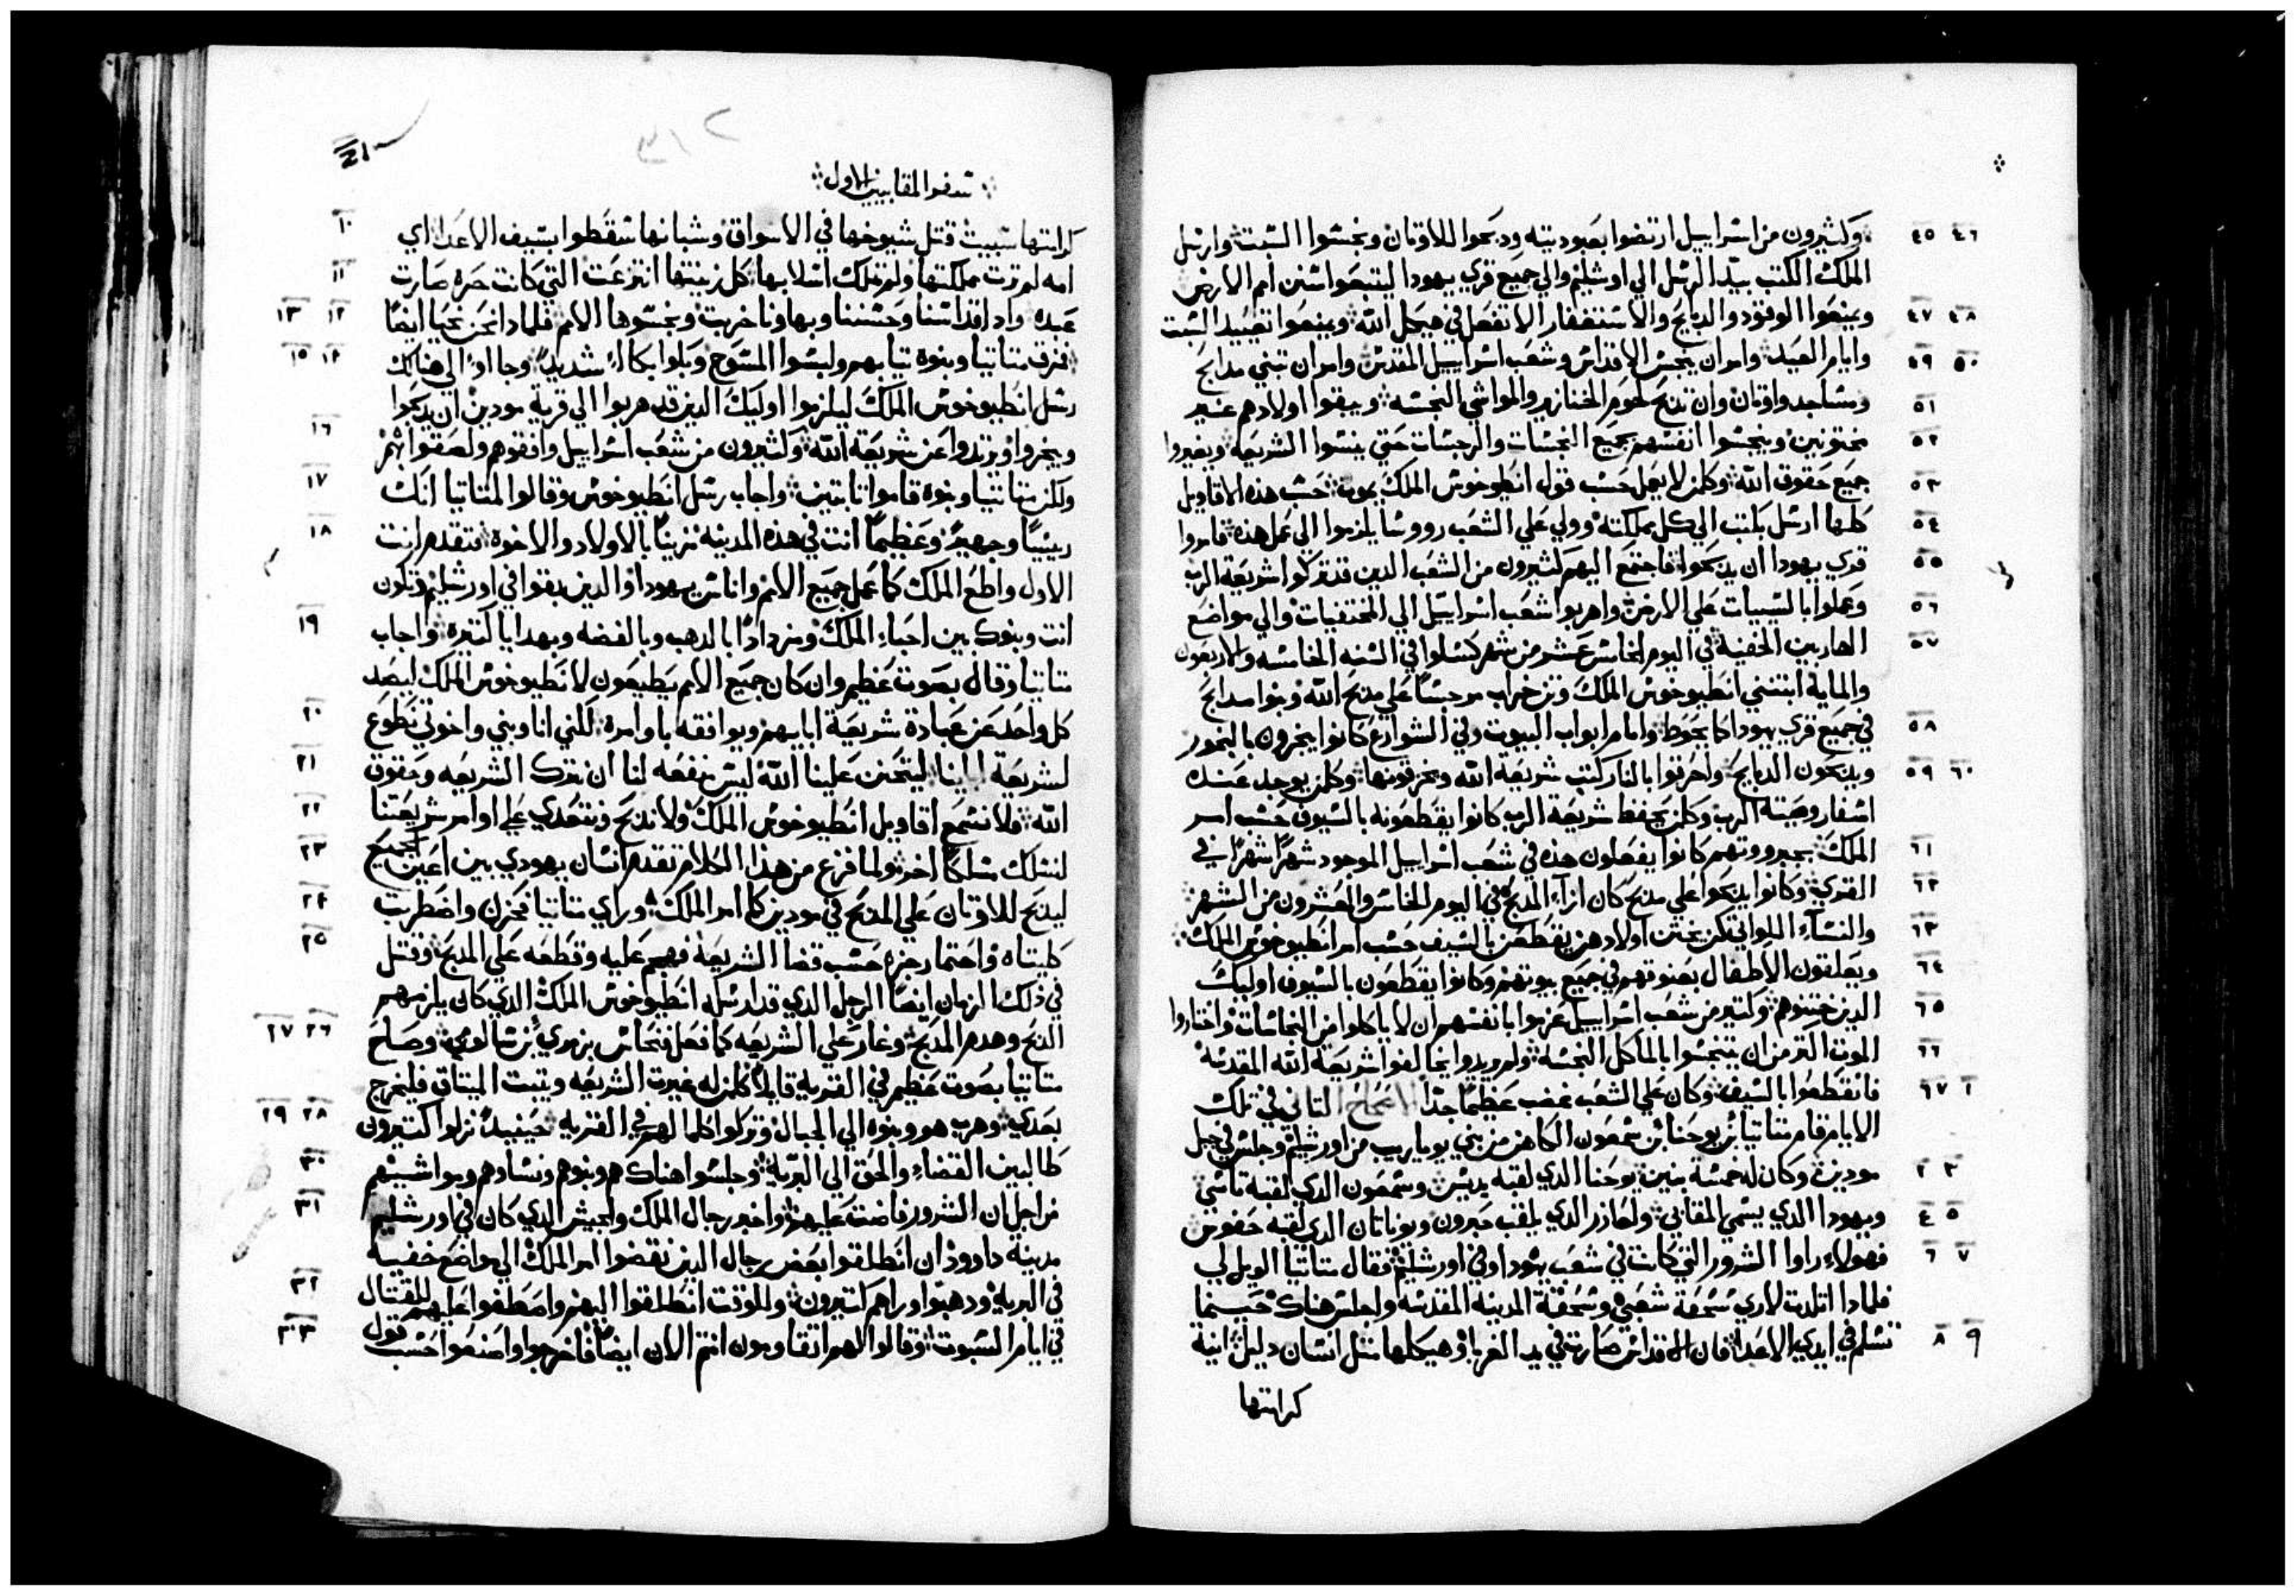 وكثيرون من اسراييل ارتضوا بعبوديته ودبحوا للاوتان ونجسوا السبت وارسل ٤٥ ٤٦
الملك الكتب بيد الرسل الي اورشليم والي جميع قري يهودا ليتبعوا سنن امم الارض
ويمنعوا الوقود والدبايح والاستغفار الا تفعل في هيكل الله ويمنعوا تعييد السبت ٤٧ ٤٨
وايام العيد وامر ان ينجس الاقداس وشعب اسراييل المقدس وامر ان تبني مدابح ٤٩ ٥٠
ومساجد واوتان وان تدبح لحوم الخنازير والمواشي النجسه ويبقوا اولادهم غير ٥١
مختونين وينجسوا انفسهم بجميع النجسات والرجسات حتي ينسوا الشريعه ويغيروا ٥٢
جميع حقوق الله وكلمن لا يعمل حسب قول انطيوخوس الملك يموت حسب هذه الاقاويل ٥٣
كلها ارسل يكتب الي كل مملكته وولي علي الشعب رووسا يلزموا الي عمل هده فامروا ٥٤
قري يهودا ان يدبحوا فاجتمع اليهم كثيرون من الشعب الدين قد تركوا شريعة الرب ٥٥
وعملوا بالسييات علي الارض واهربوا شعب اسراييل الي المختفيات والي مواضع ٥٦
الهاربين الخفية في اليوم الخامس عشر من شهر كسلوا في السنه الخامسه والاربعون ٥٧
والماية ابتني انطيوخوس الملك وتن خراب مرجسا علي مدبح الله وبنوا مدابح
في جميع قري يهودا كما يحوط وامام ابواب البيوت وفي الشوارع كانوا يبخرون بالبخور ٥٨
ويدبحون الدبايح واحرقوا بالنار كتب شريعة الله ومزقوتها وكلمن يوجد عنده ٥٩ ٦٠
اسفار وصية الرب وكلمن يحفظ شريعة الرب كانوا يقطعونه بالسيوف حسب امر
الملك بجبروتهم كانوا يفعلون هذه في شعب اسراييل الموجود شهرًا شهرًا في ٦١
القري وكانوا يدبحوا علي مدبح كان ازاء المدبح في اليوم الخامس والعشرون من الشهر ٦٢
والنساء اللواتي كن يختن اولادهن يقطعن بالسيف حسب امر انطيوخوس الملك ٦٣
ويعلقون الاطفال بعنوقهم في جميع بيوتهم وكانوا يقطعون بالسيوف اوليك ٦٤
الدين ختنوهم وكتير من شعب اسراييل عزموا بانفسهم ان لا ياكلوا من النجاسات واختاروا ٦٥
الموت اكتر من ان يتنجسوا بالماكل النجسه ولم يريدوا يخالفوا شريعة الله المقدسه ٦٦
فانقطعوا بالسيف وكان علي الشعب غضب عظيما جدًا الاصحاح التاني في تلك ٦٧ ١
الايام قام متاتيا بن يوحنا بن شمعون الكاهن من بني يوياريب من اورشليم وجلس في جبل
مودين وكان له خمسة بنين يوحنا الدي لقبه يديس وشمعون الدي لقبه تاسي ٢ ٣
ويهودا الدي يسمي المقابي ولعازر الدي يلقب حبرون ويوناتان الدي لقبه حفوس ٤ ٥
فهولاء راوا الشرور التي كانت في شعب يهودا وفي اورشليم فقال متاتيا الويل لي ٦ ٧
فلمادا اتلدت لاري سحقة شعبي وسحقة المدينه المقدسه واجلس هناك حينما
تسلم في ايدي الاعدا فان الاقداس صارت في يد الغربا وهيكلها متل انسان دليل انية ٨ ٩
كرامتها
٣١٢
سفر المقابيين الاول
كرامتها سبيت قتل شيوخها في الاسواق وشبانها سقطوا بسيف الاعدا اي ١٠
امه لم ترت مملكتها ولم تملك اسلابها كل زينتها انتزعت التي كانت حره صارت ١١
عبده وادا قداسنا وحسننا وبهاونا خربت ونجسوها الامم فلمادا نحن نحيا ايضًا ١٢ ١٣
فمزق متاتيا وبنوه تيابهم ولبسوا المسوح وبكوا بكاءً شديدًا وجااوا الي هنالك ١٤ ١٥
رسل انطيوخوس الملك ليلزموا اوليك الدين قد هربوا الي قرية مودين ان يدبحوا
ويبخروا ويرتدوا عن شريعة الله وكثيرون من شعب اسراييل وافقوهم ولصقوا بهم ١٦
ولكن متاتيا وبنوه قاموا تابتين واجاب رسل انطيوخوس وقالوا لمتاتيا انك ١٧
رييسًا وجهيرً وعظيمًا انت في هذه المدينه مزينًا بالاولاد والاخوة فتقدم انت ١٨
الاول واطع الملك كما عمل جميع الامم واناس يهودا والدين بقوا في اورشليم وتكون
انت وبنوك بين احباء الملك ومزدادًا بالدهب وبالفضه وبهدايا كتيره واجاب ١٩
متاتيا وقال بصوت عظيم وان كان جميع الامم يطيعون لانطيوخوس الملك ليبعد
كل واحد عن عبادة شريعة ابايهم ويوافقه باوامره لكني انا وبني واخوتي نطوع ٢٠
لشريعة ابينا ليتحنن علينا الله ليس منفعه لنا ان نترك الشريعه وحقوق ٢١
الله فلا نسمع اقاويل انطيوخوس الملك ولا ندبح ونتعدي علي اوامر شريعتنا ٢٢
لنسلك مسلكًا اخر ولما فرغ من هذا الكلام تقدم انسان يهودي بين اعين الجميع ٢٣
ليدبح للاوتان علي المدبح في مودين كما امر الملك وراي متاتيا فحزن واضطربت ٢٤
كليتاه واحتما رجزه حسب قضا الشريعه فهجم عليه وقطعه علي المدبح وقتل ٢٥
في ذلك الزمان ايضًا الرجل الدي قد ارسله انطيوخوس الملك الدي كان يلزمهم
الدبح وهدم المدبح وغار علي الشريعه كما فعل فنحاس بزمري بن سالومي وصاح ٢٦ ٢٧
متاتيا بصوت عظيم في القرية قايلاً كلمن له غيرت الشريعه ويثبت الميتاق فليخرج
بعدي وهرب هو وبنوه الي الجبال وتركوا كلما لهم في القرية حينيدً نزلوا كتيرون ٢٨ ٢٩
طالبين القضاء والحق الي البرية وجلسوا هناك هم وبنوهم ونساوهم ومواشيهم ٣٠
من اجل ان الشرور فاضت عليهم واخبر رجال الملك والجيش الدي كان في اورشليم ٣١
مدينة داوود ان انطلقوا بعض رجال الدين نقضوا امر الملك الي مواضع خفيه
في البرية ودهبوا وراهم كتيرون وللوقت انطلقوا اليهم واصطفوا عليهم للقتال ٣٢
في ايام السبوت وقالوا لهم اتقاومون انتم الان ايضًا فاخرجوا واصنعوا حسب قول ٣٣